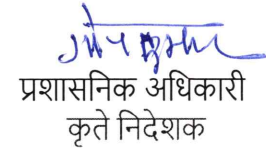 प्रशासनिक अधिकारी
कृते निदेशक